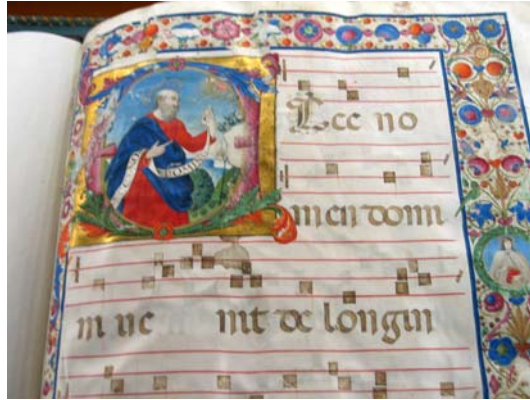 ECce no
men domi
ni ve nit de longin